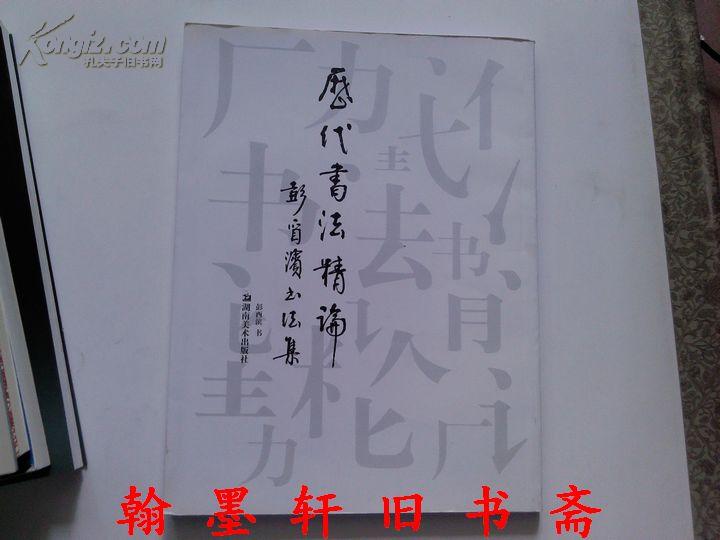 Kongfz.com
孔夫子旧书网
歷代書法精論
彭西濱书法集
彭西滨 书
湖南美术出版社
翰墨轩旧书斋